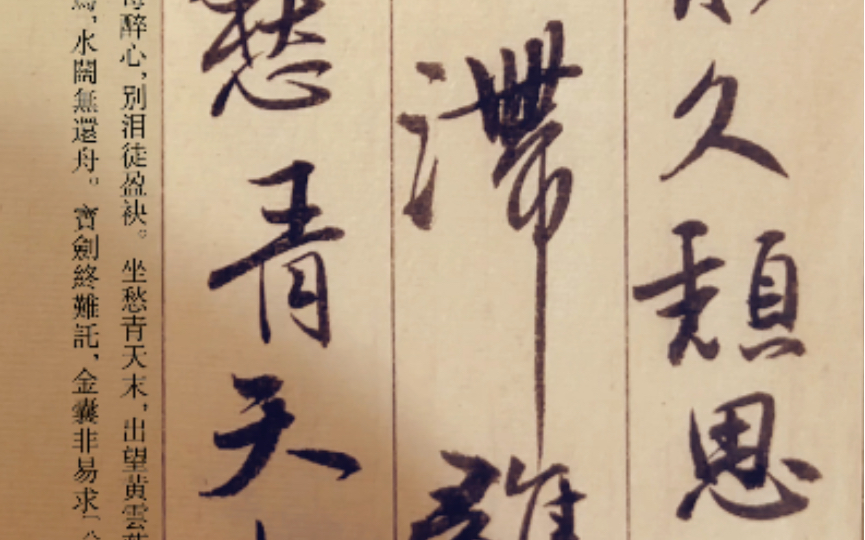 久頹思
滯
愁青天
醉心，別泪徒盈袂。坐愁青天末，出望黄雲
水闊無還舟。寶劍終難託，金囊非易求